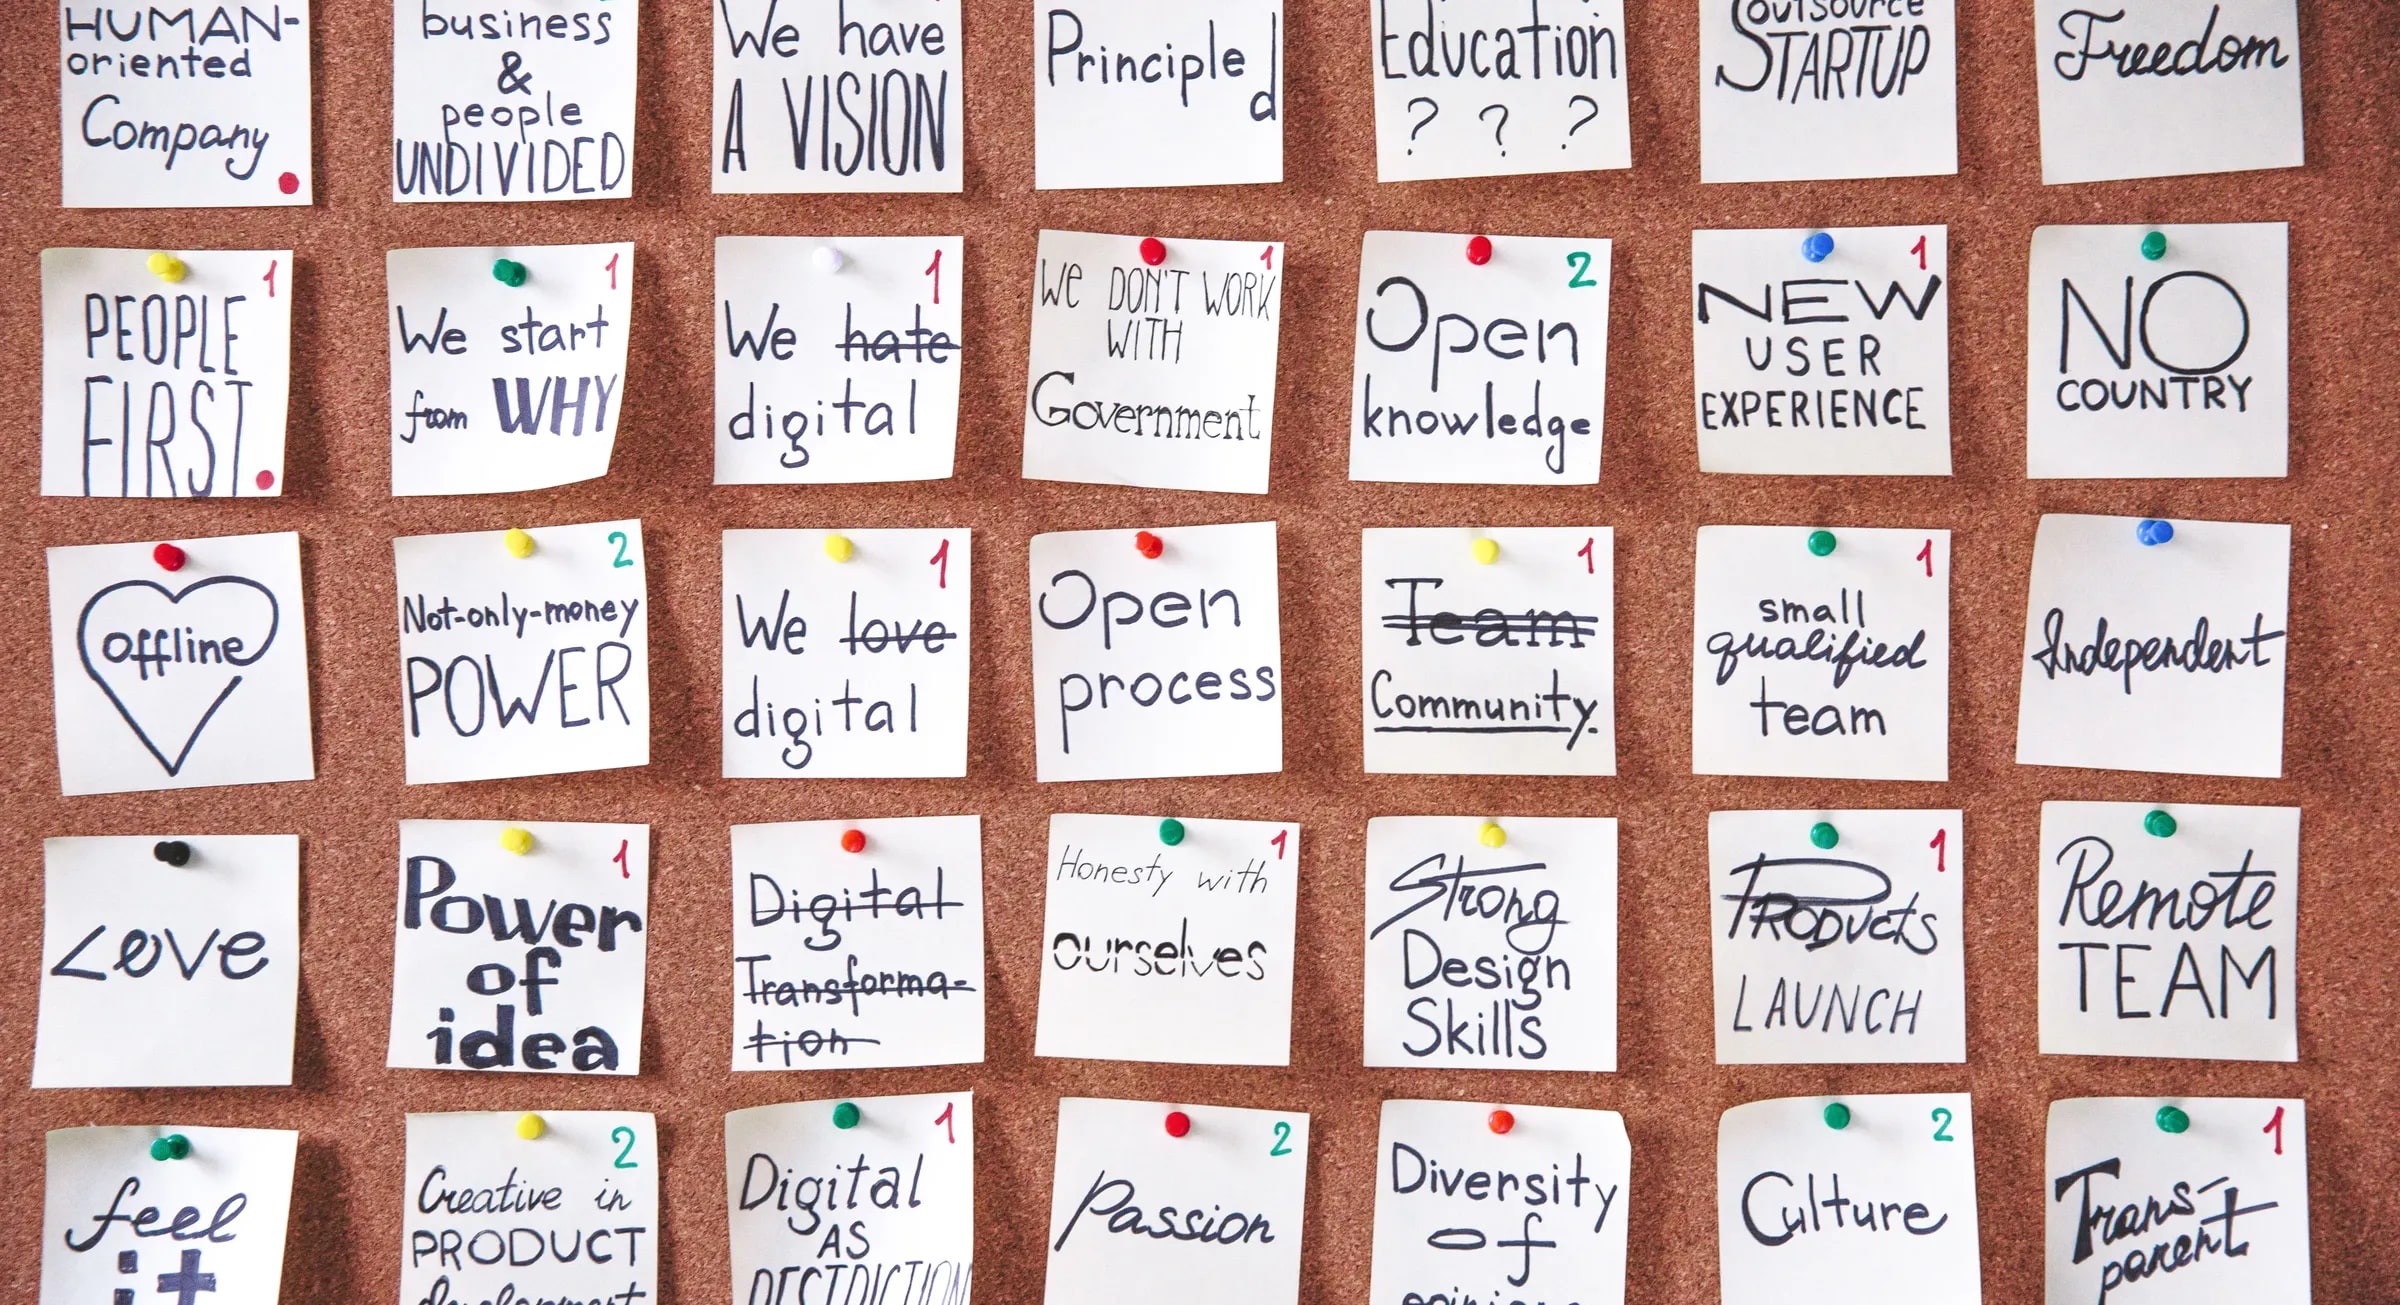 HUMAN-
oriented
Company
business
&
people
UNDIVIDED
We have
A VISION
Principled
Education
? ? ?
outsource
STARTUP
Freedom
1
PEOPLE
FIRST
1
We start
from WHY
1
We hate
digital
1
We DON'T WORK
WITH
Government
2
Open
knowledge
1
NEW
USER
EXPERIENCE
NO
COUNTRY
offline
2
Not-only-money
POWER
1
We love
digital
Open
process
1
Team
Community.
1
small
qualified
team
Independent
Love
1
Power
of
idea
Digital
Transforma-
tion
1
Honesty with
ourselves
Strong
Design
Skills
1
PRODUCTS
LAUNCH
Remote
TEAM
feel
it
2
Creative in
PRODUCT
development
1
Digital
AS
2
Passion
Diversity
of
2
Culture
1
Trans-
parent